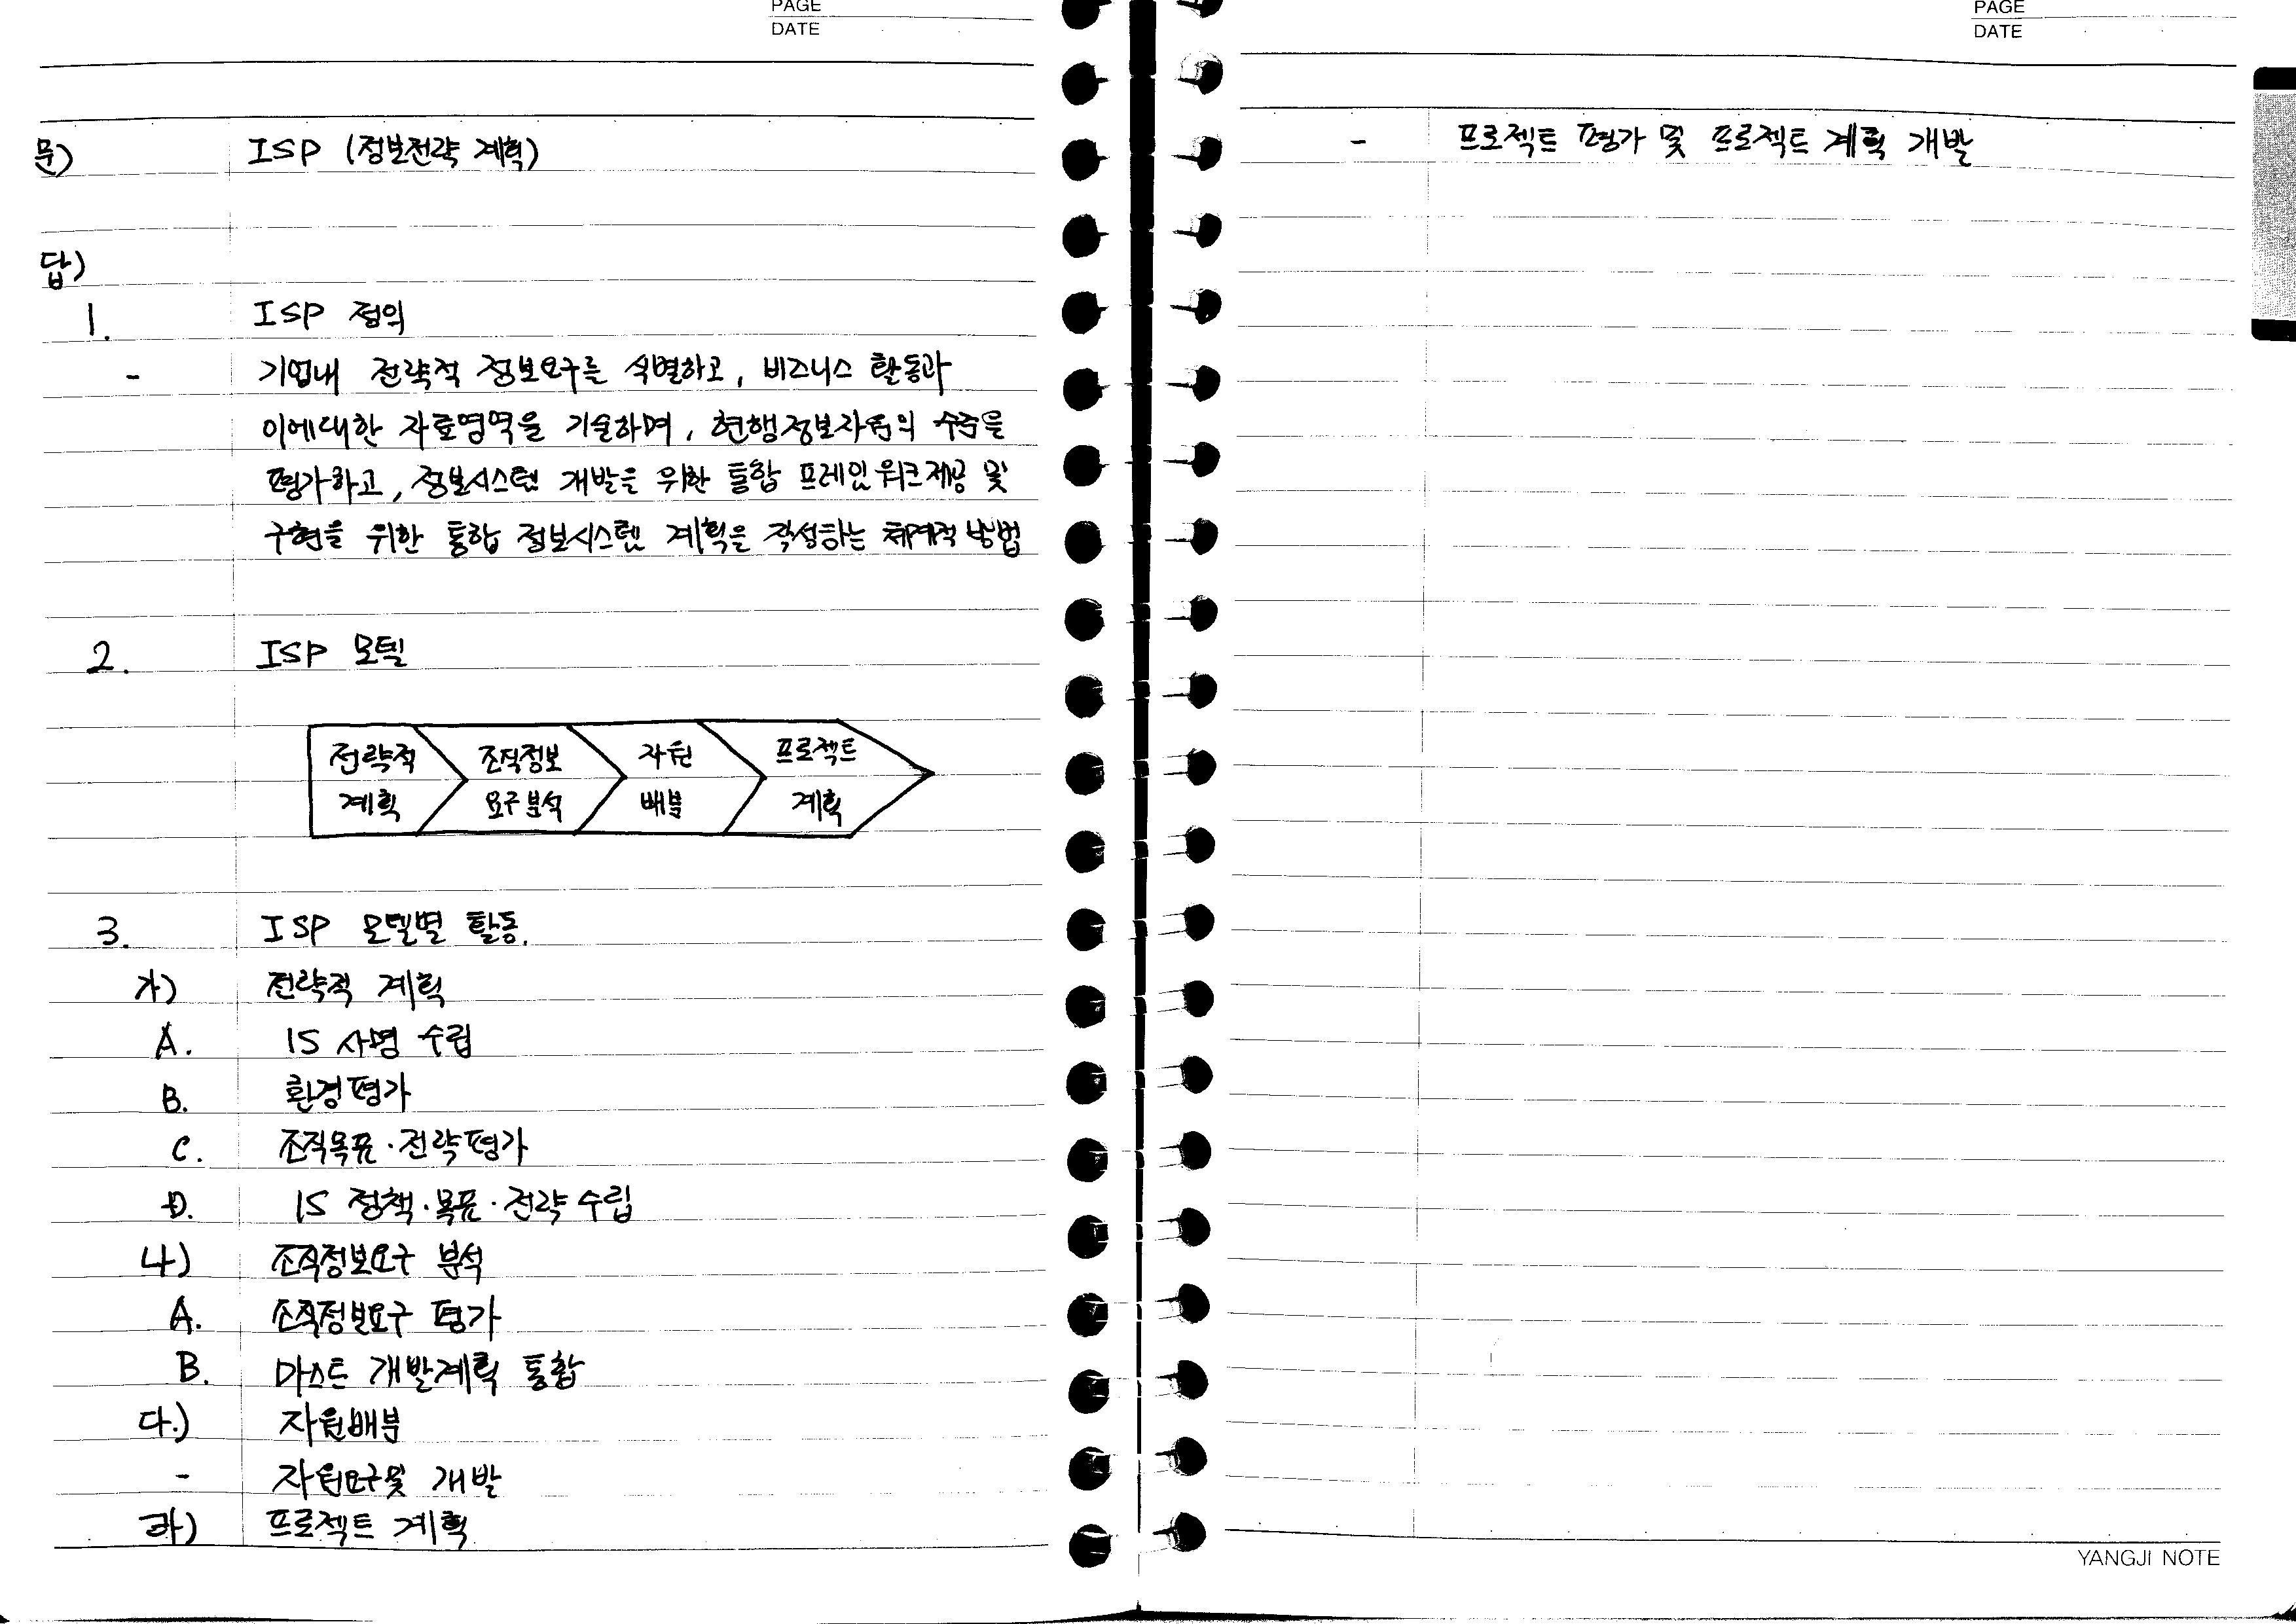 PAGE
DATE
문) ISP (정보전략 계획)
답)
1. ISP 정의
- 기업내 전략적 정보요구를 식별하고, 비즈니스 활동과
이에대한 자료영역을 기술하며, 현행정보자원의 수준을
평가하고, 정보시스템 개발을 위한 통합 프레임워크제공 및
구현을 위한 통합 정보시스템 계획을 작성하는 체계적 방법
2. ISP 모델
전략적 조직정보 자원 프로젝트
계획 요구분석 배분 계획
3. ISP 모델별 활동.
가) 전략적 계획
A. IS 사명 수립
B. 환경평가
C. 조직목표·전략평가
D. IS 정책·목표·전략수립
나) 조직정보요구 분석
A. 조직정보요구 평가
B. 마스트 개발계획 통합
다.) 자원배분
- 자원요구및 개발
라) 프로젝트 계획
PAGE
DATE
- 프로젝트 평가 및 프로젝트 계획 개발
YANGJI NOTE